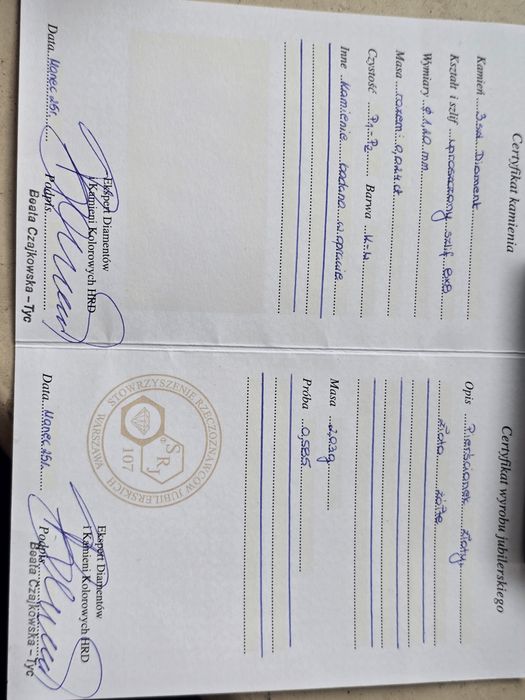 Certyfikat kamienia
Kamień 3 szt. Diament
Kształt i szlif uproszczony szlif 8x8
Wymiary ϕ 1,10 mm
Masa razem: 0,024 ct
Czystość P1-P2 Barwa K-L
Inne Kamienie badano w oprawie
Ekspert Diamentów
i Kamieni Kolorowych HRD
Data Marzec 25r. Podpis
Beata Czajkowska – Tyc
Certyfikat wyrobu jubilerskiego
Opis Pierścionek złoty
złoto żółte
Masa 2,03g
Próba 0,585
STOWARZYSZENIE RZECZOZNAWCÓW JUBILERSKICH
WARSZAWA
SRJ
107
Ekspert Diamentów
i Kamieni Kolorowych HRD
Data Marzec 25r. Podpis
Beata Czajkowska – Tyc